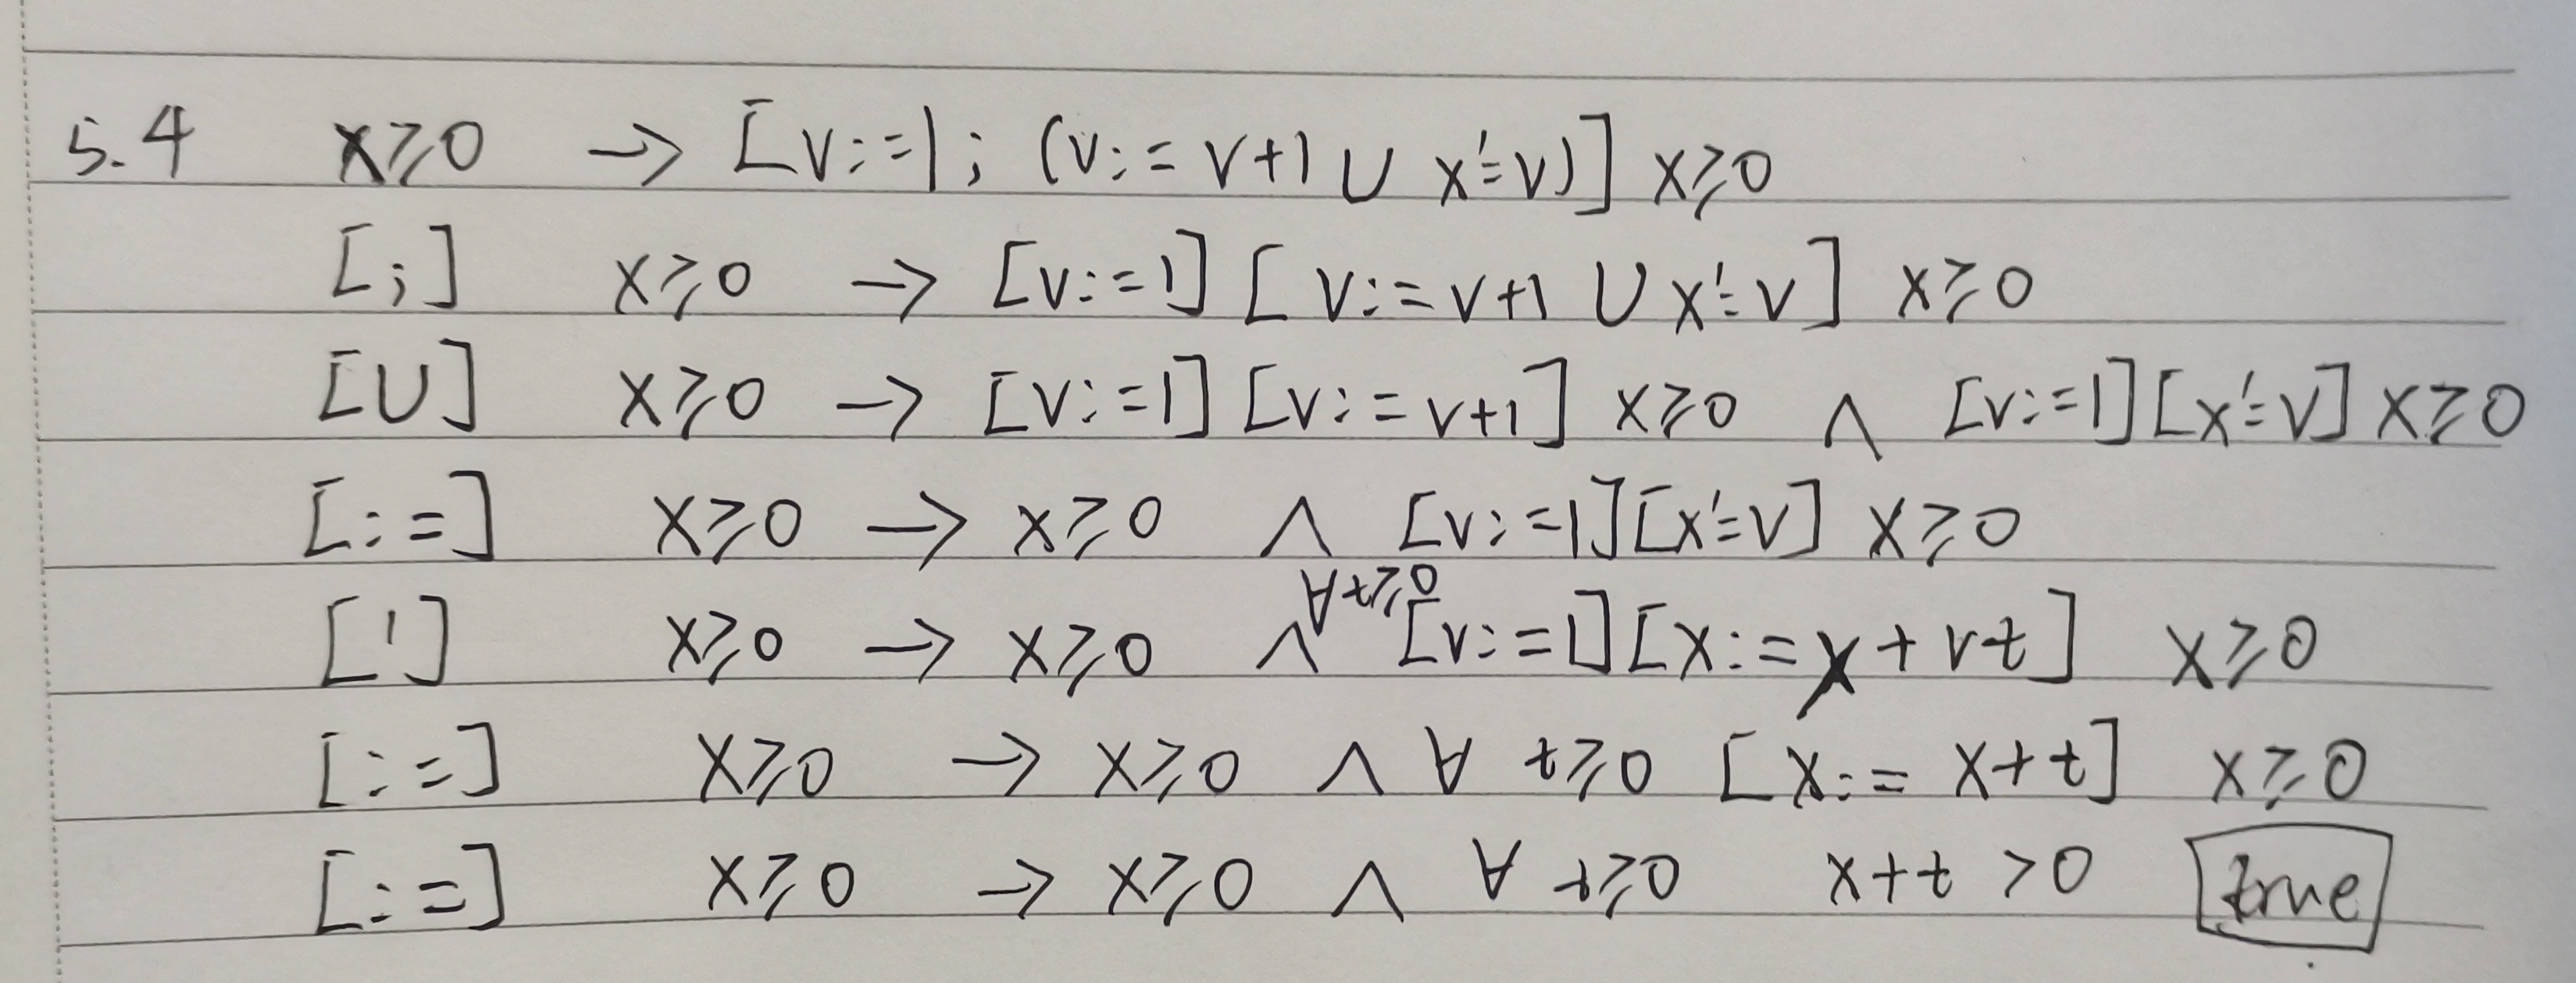 5.4 x⩾0 → [v:=1; (v:= v+1 ∪ x'=v)] x⩾0
[;] x⩾0 → [v:=1] [v:=v+1 ∪ x'=v] x⩾0
[∪] x⩾0 → [v:=1] [v:=v+1] x⩾0 ∧ [v:=1][x'=v] x⩾0
[:=] x⩾0 → x⩾0 ∧ [v:=1][x'=v] x⩾0
['] x⩾0 → x⩾0 ∧ ∀t⩾0 [v:=1][x:=x+vt] x⩾0
[:=] x⩾0 → x⩾0 ∧ ∀ t⩾0 [x:= x+t] x⩾0
[:=] x⩾0 → x⩾0 ∧ ∀ t⩾0 x+t >0 true